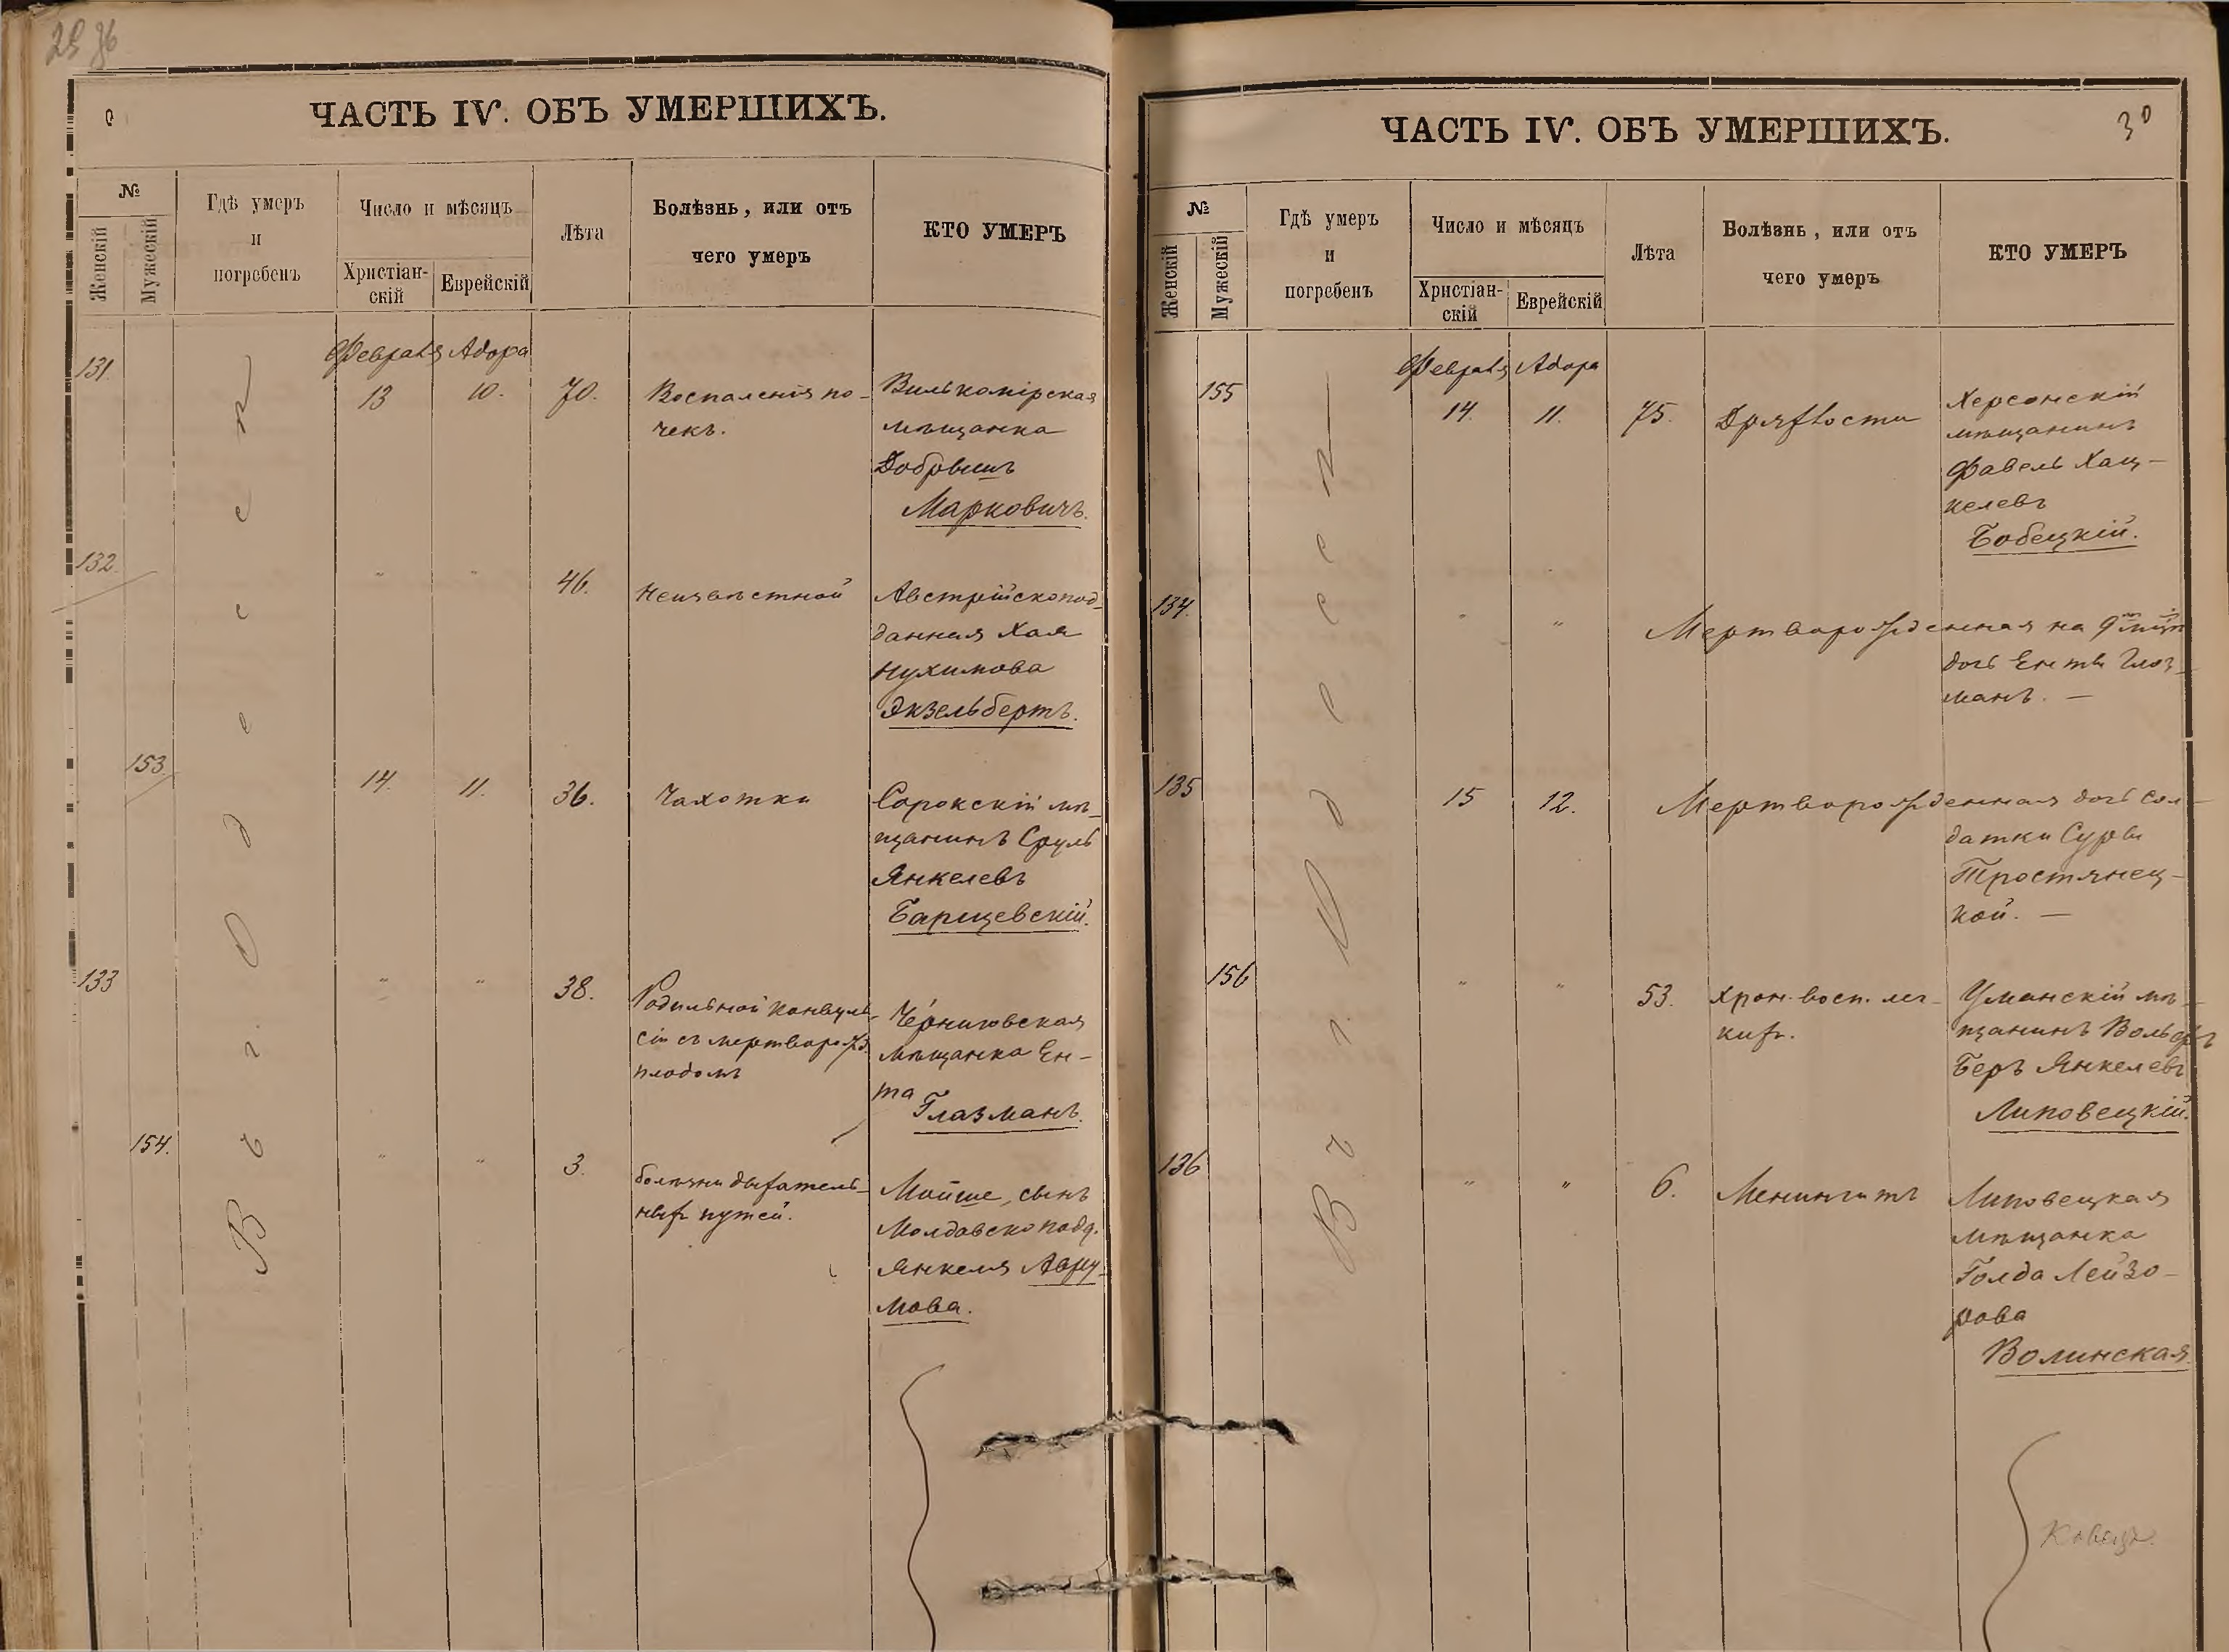 ЧАСТЬ IV. ОБЪ УМЕРШИХЪ.
№
Женскій
Мужескій
Гдѣ умеръ
и
погребенъ
Число и мѣсяцъ
Христіан-
скій
Еврейскій
Лѣта
Болѣзнь, или отъ
чего умеръ
КТО УМЕРЪ
Въ г. Одессѣ
Февраля Адора
131. 13 10. 70. Воспаленія по-
чекъ.
Вилькомірская
мѣщанка
Добрышъ
Марковичъ.
132. " " 46. Неизвѣстной
Австрійскопод-
данная Хая
Нухимова
Экзельбертъ.
153. 14. 11. 36. Чахотки
Сорокскій мѣ-
щанинъ Сруль
Янкелевъ
Барщевскій.
133 " " 38. Родильной конвуль-
сіи съ мертворожд.
плодомъ
Черниговская
мѣщанка Ен-
та
Глазманъ.
154. " " 3. болѣзни дыхатель-
ныхъ путей.
Мойше, сынъ
Молдавскоподд.
Янкеля Авру-
мова.
ЧАСТЬ IV. ОБЪ УМЕРШИХЪ.
30
№
Женскій
Мужескій
Гдѣ умеръ
и
погребенъ
Число и мѣсяцъ
Христіан-
скій
Еврейскій
Лѣта
Болѣзнь, или отъ
чего умеръ
КТО УМЕРЪ
Въ г. Одессѣ
Февраля Адора
155 14. 11. 75. Дряхлости
Херсонскій
мѣщанинъ
Фавель Хац-
келевъ
Бобецкій.
134. " " Мертворожденная на 9
дочь Енты Глоз-
манъ. —
135 15 12. Мертворожденная дочь сол-
датки Суры
Тростянец-
кой. —
156 " " 53. Хрон. восп. лег-
кихъ.
Уманскій мѣ-
щанинъ Вольфъ
Беръ Янкелевъ
Липовецкій.
136 " " 6. Менингитъ
Липовецкая
мѣщанка
Голда Лейзо-
рова
Волинская.